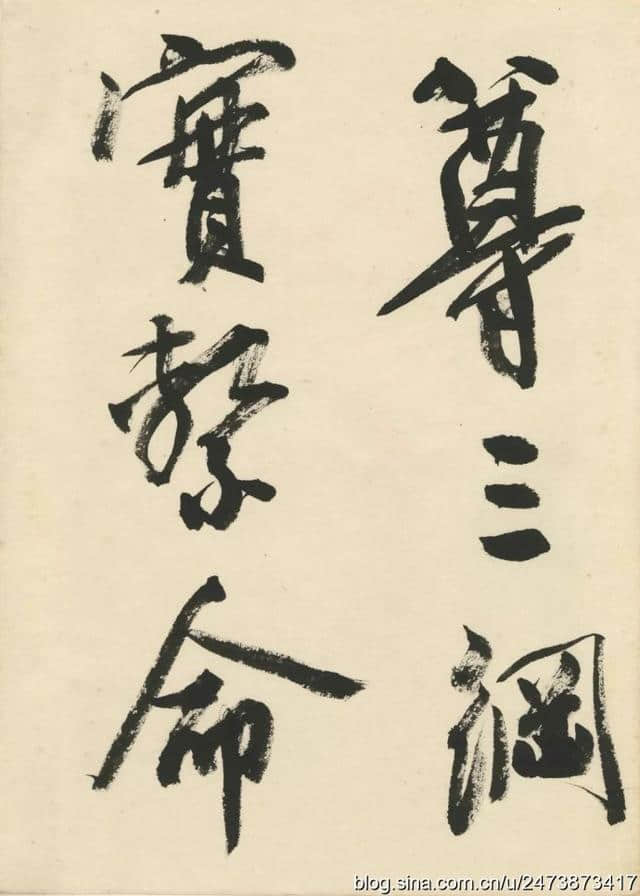 尊三綱
實繫命
blog.sina.com.cn/u/2473873417